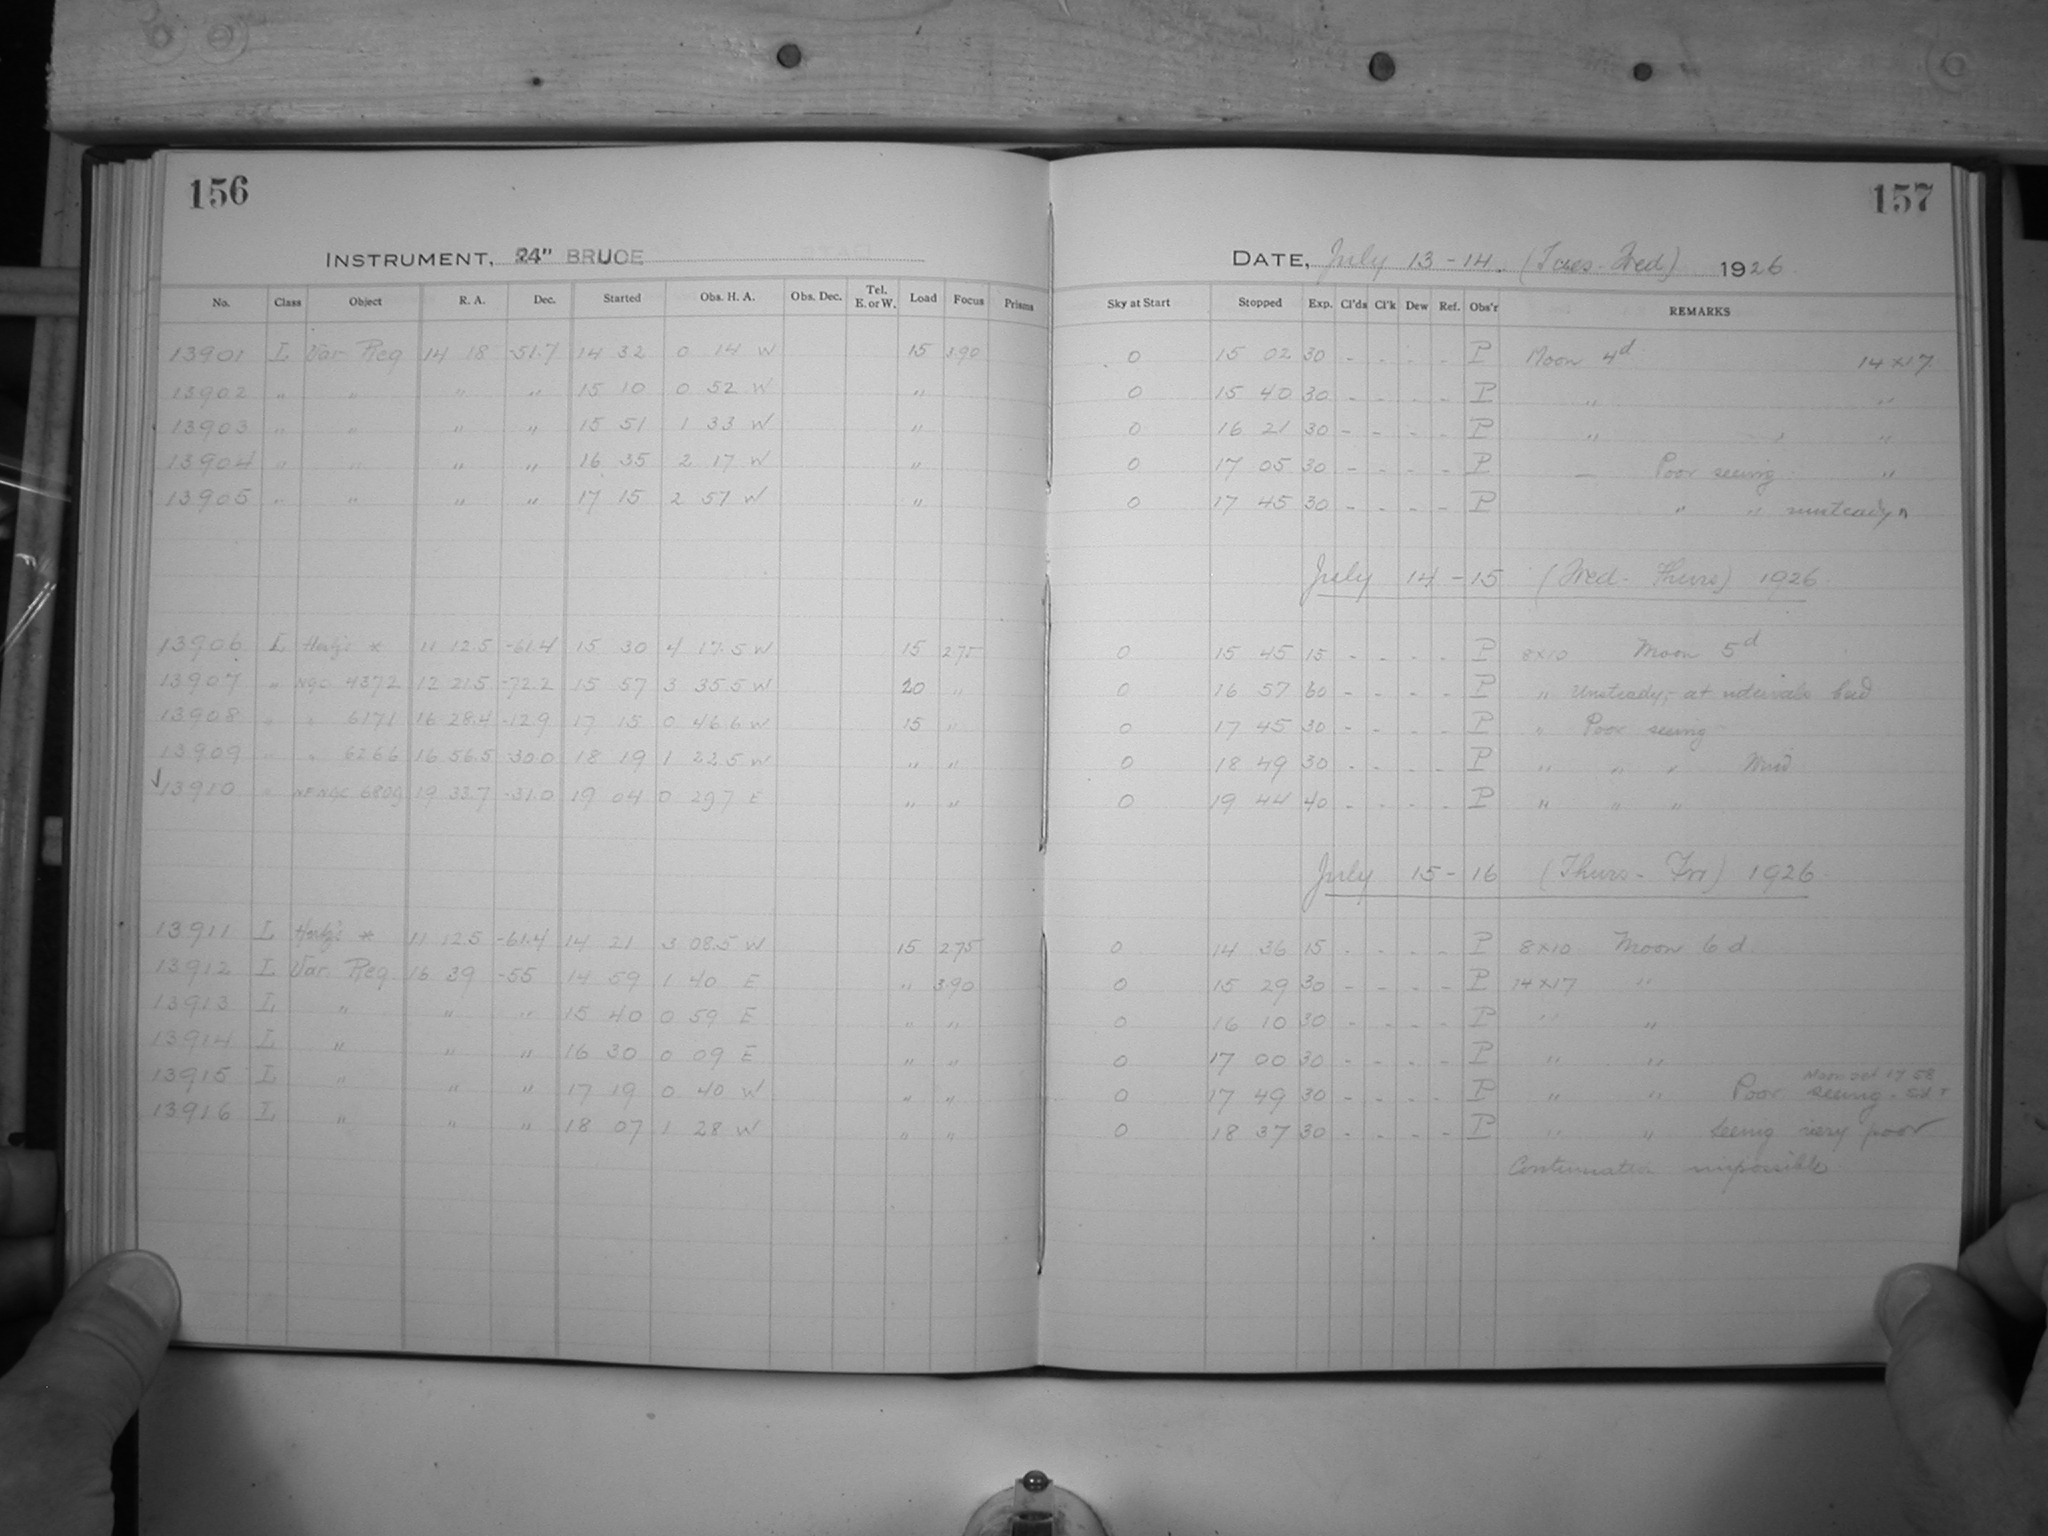 156
INSTRUMENT, 24" BRUCE
No. Class Object R. A. Dec. Started Obs. H. A. Obs. Dec. Tel. E. or W. Load Focus Prisms
13901 L Var Reg 14 18 -51.7 14 32 0 14 W 15 3.90
13902 " " " " 15 10 0 52 W "
13903 " " " " 15 51 1 33 W "
13904 " " " " 16 35 2 17 W "
13905 " " " " 17 15 2 57 W "
13906 L * 11 12.5 -61.4 15 30 4 17.5 W 15 2.75
13907 " NGC 4372 12 21.5 -72.2 15 57 3 35.5 W 20 "
13908 " " 6171 16 28.4 -12.9 17 15 0 46.6 W 15 "
13909 " " 6266 16 56.5 -30.0 18 19 1 22.5 W " "
13910 " NGC 6809 19 33.7 -31.0 19 04 0 29.7 E " "
13911 L * 11 12.5 -61.4 14 21 3 08.5 W 15 2.75
13912 L Var. Reg 16 39 -55 14 59 1 40 E " 3.90
13913 L " " " 15 40 0 59 E " "
13914 L " " " 16 30 0 09 E " "
13915 L " " " 17 19 0 40 W " "
13916 L " " " 18 07 1 28 W " "
157
DATE, July 13-14. (Tues-Wed) 1926
Sky at Start Stopped Exp. Cl'ds Cl'k Dew Ref. Obs'r REMARKS
0 15 02 30 - - - - P Moon 4d 14×17
0 15 40 30 - - - - P " "
0 16 21 30 - - - - P " "
0 17 05 30 - - - - P — Poor seeing "
0 17 45 30 - - - - P " " unsteady "
July 14-15 (Wed-Thurs) 1926
0 15 45 15 - - - - P 8×10 Moon 5d
0 16 57 60 - - - - P " Unsteady, at intervals bad
0 17 45 30 - - - - P " Poor seeing
0 18 49 30 - - - - P " " " Wind
0 19 44 40 - - - - P " " "
July 15-16 (Thurs-Fri) 1926
0 14 36 15 - - - - P 8×10 Moon 6d
0 15 29 30 - - - - P 14×17 "
0 16 10 30 - - - - P " "
0 17 00 30 - - - - P " "
Moon set 17 58
0 17 49 30 - - - - P " " Poor seeing
0 18 37 30 - - - - P " " Seeing very poor
Continuation impossible